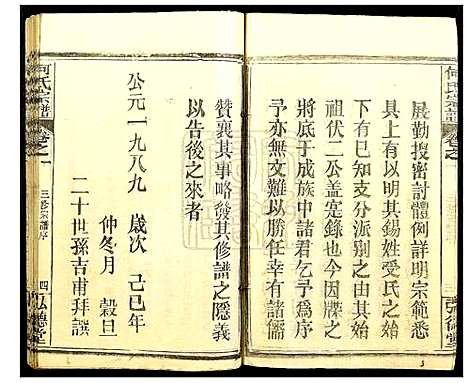 何氏宗譜
卷之一
三
弘德堂
展勤搜密討體例詳明宗範悉
具是以有以明其錫姓受氏之始
下有已知支分派别之由
祖伏二公蓋寔錄也今因牒之
將底于成族中諸君乞予爲序
予亦無文難以勝任幸有諸儒
贊襄其事略發其修譜之隱義
以告後之來者
公元一九八九 歲次 己巳年
仲冬月 穀旦
二十世孫吉甫拜譔
何氏宗譜
卷之一
三修宗譜序
四
弘德堂